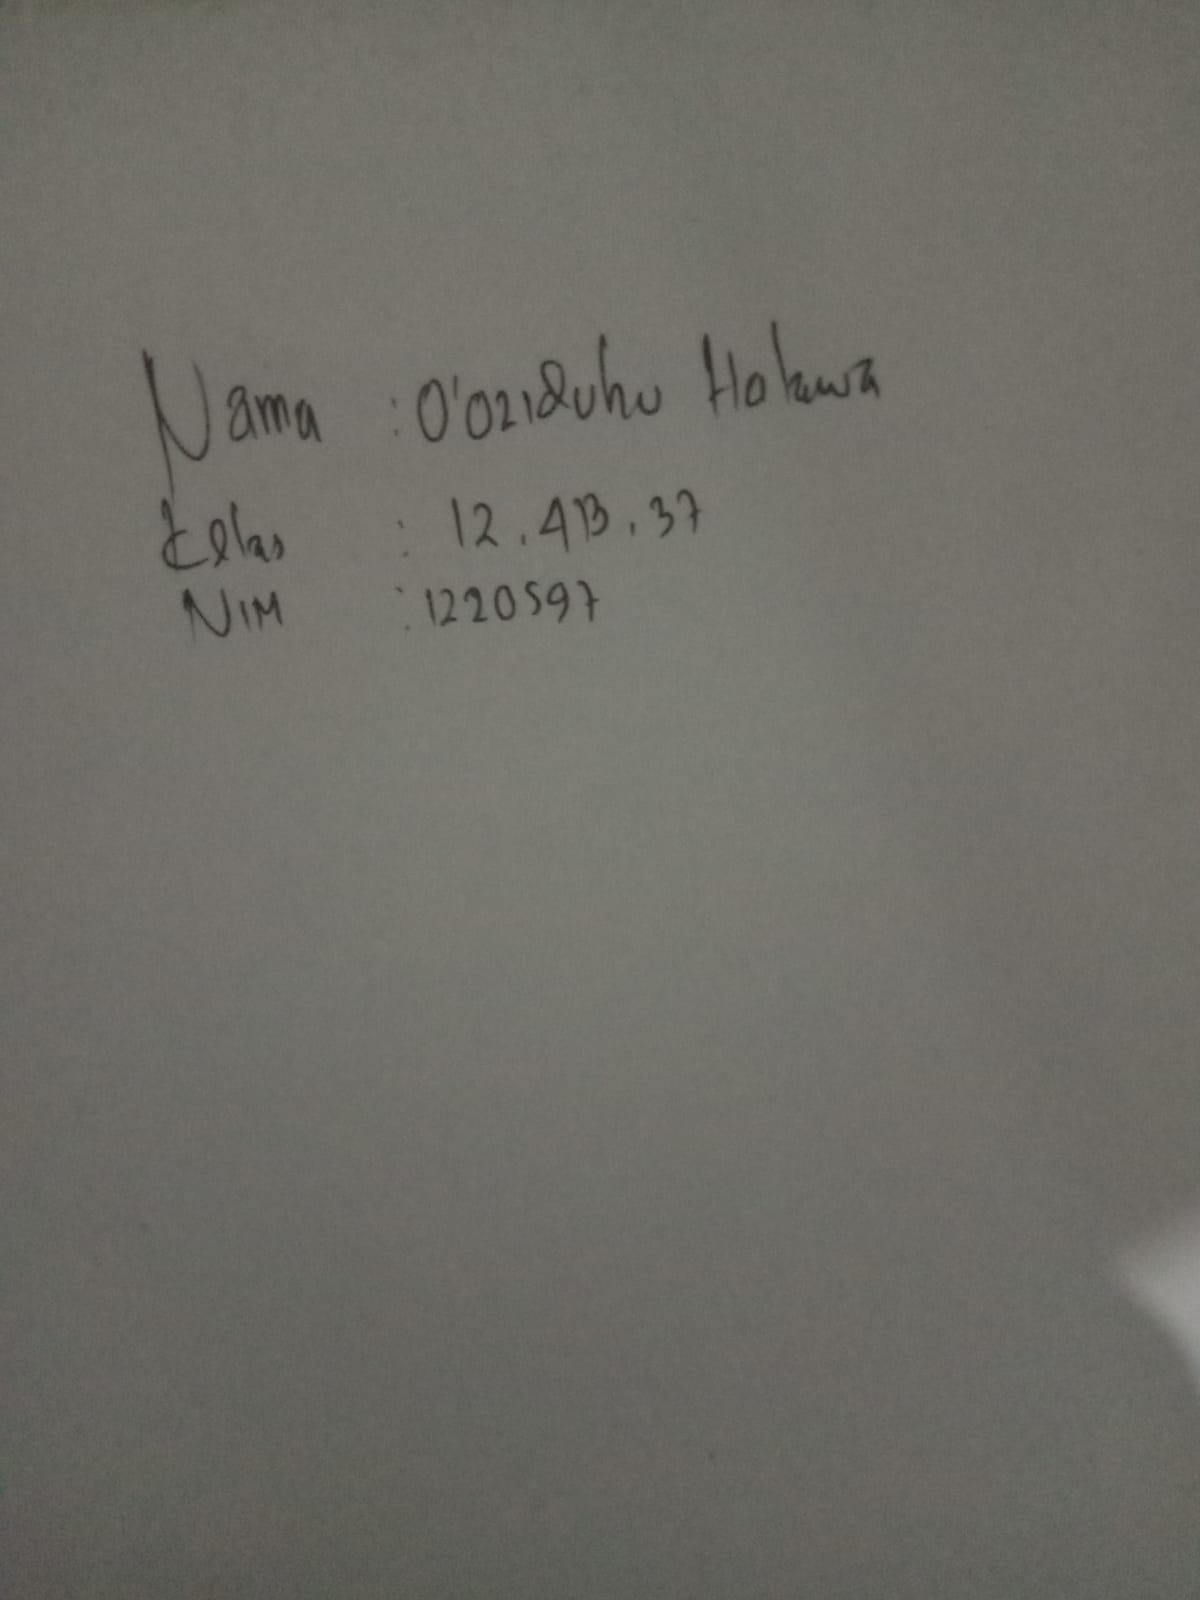 Nama : O'oziduhu Halawa
Kelas : 12.4B.37
NIM : 1220597